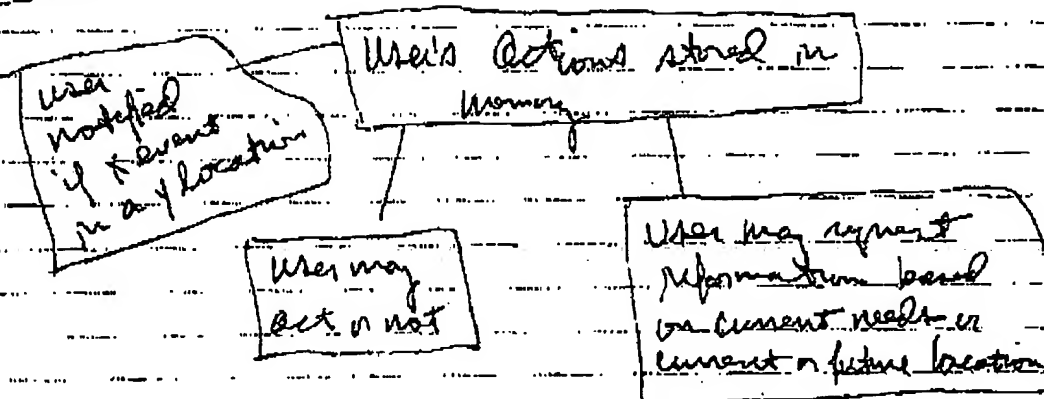 User's Actions stored in
memory
user
notified
if X event
in a Y location
User may
act or not
User may request
information based
on current needs or
current or future location